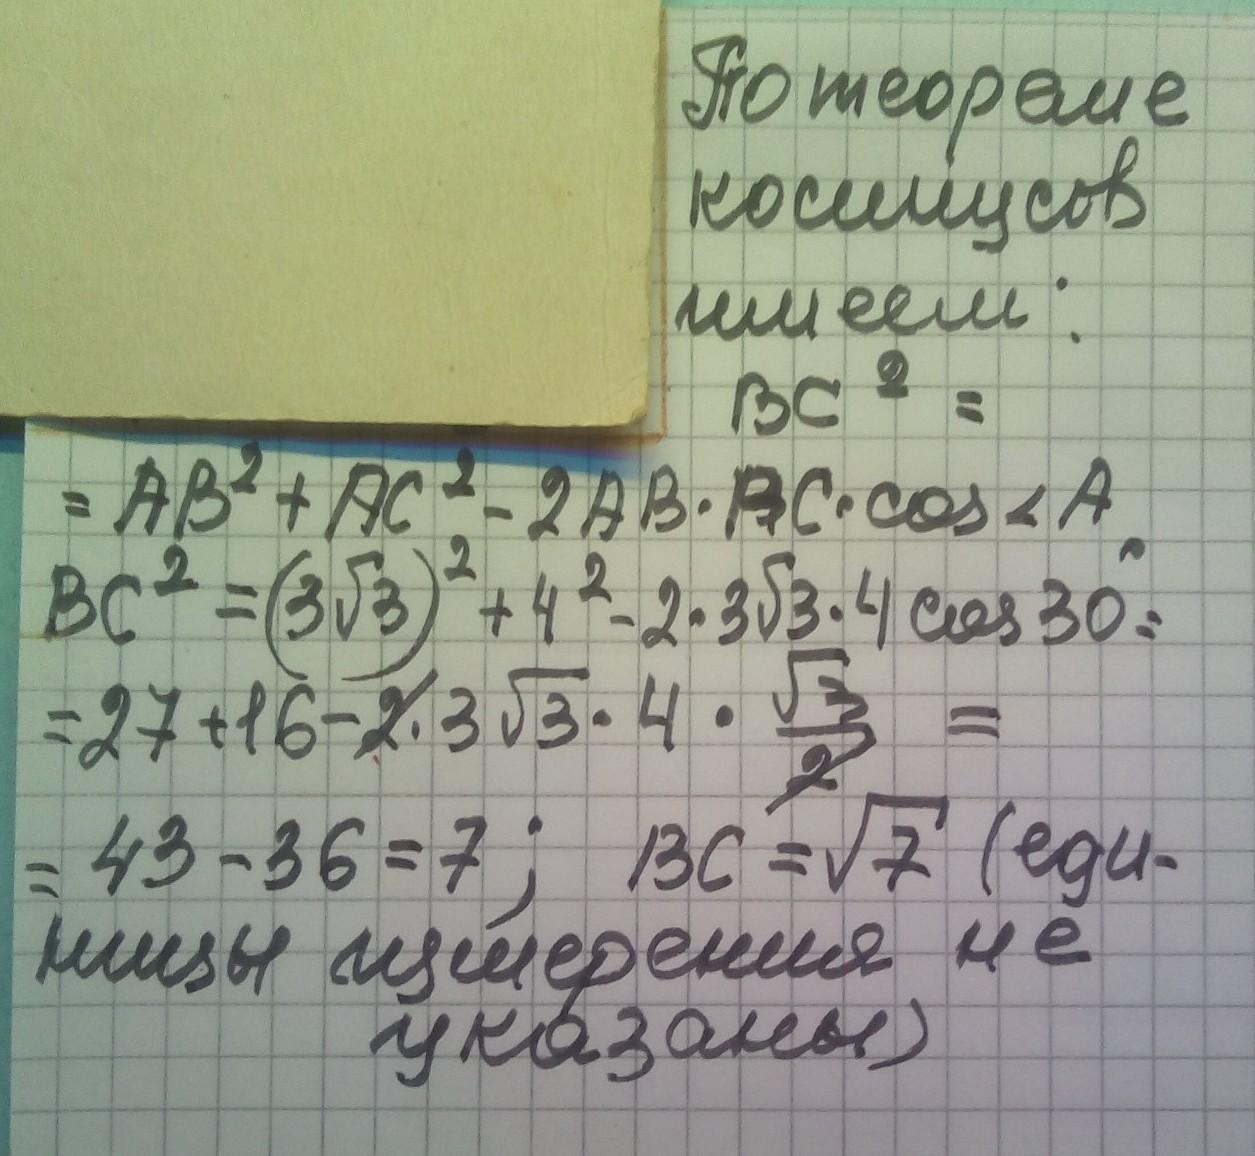 По теореме
косинусов
имеем:
BC² =
= AB² + AC² - 2AB · AC · cos < A
BC² = (3√3)² + 4² - 2 · 3√3 · 4 cos 30° =
= 27 + 16 - 2 · 3√3 · 4 · √3/2 =
= 43 - 36 = 7; BC = √7 (еди-
ницы измерения не
указаны)